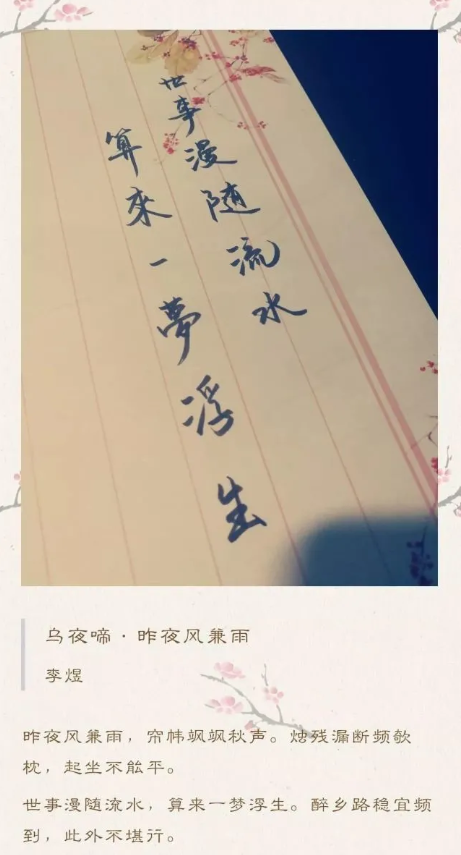 世事漫随流水
算來一夢浮生
乌夜啼·昨夜风兼雨
李煜
昨夜风兼雨，帘帏飒飒秋声。烛残漏断频欹
枕，起坐不能平。
世事漫随流水，算来一梦浮生。醉乡路稳宜频
到，此外不堪行。